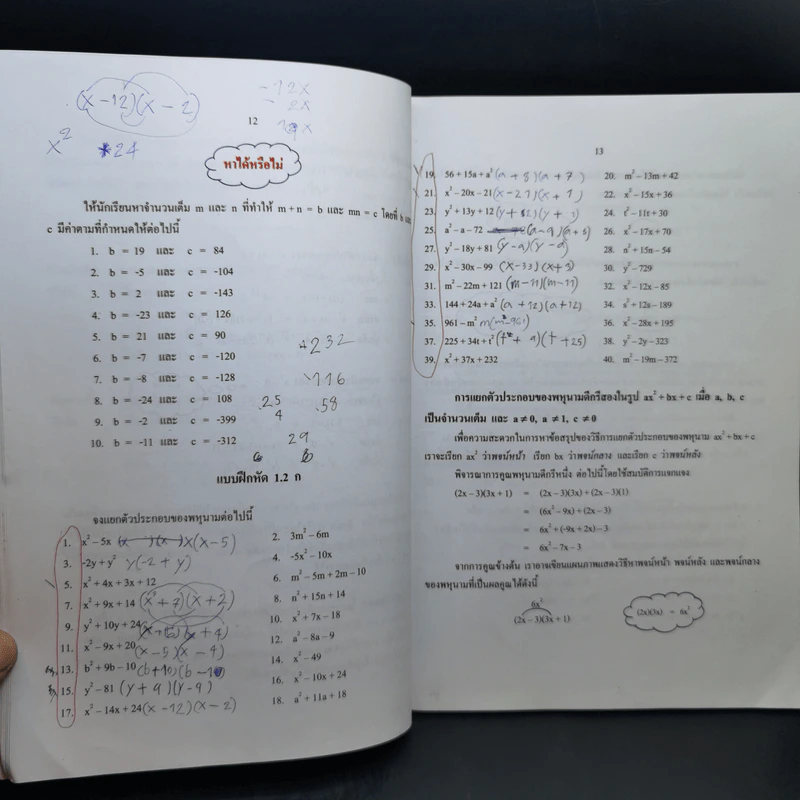 (x-12)(x-2)
-12x
-2x
x² 24
12
หาได้หรือไม่
ให้นักเรียนหาจำนวนเต็ม m และ n ที่ทำให้ m + n = b และ mn = c โดยที่ b และ
c มีค่าตามที่กำหนดให้ต่อไปนี้
1. b = 19 และ c = 84
2. b = -5 และ c = -104
3. b = 2 และ c = -143
4. b = -23 และ c = 126
5. b = 21 และ c = 90
6. b = -7 และ c = -120
7. b = -8 และ c = -128
8. b = -24 และ c = 108
9. b = -2 และ c = -399
10. b = -11 และ c = -312
232
116
25 58
4
29
แบบฝึกหัด 1.2 ก
จงแยกตัวประกอบของพหุนามต่อไปนี้
1. x² – 5x x(x-5) 2. 3m² – 6m
3. -2y + y² y(-2+y) 4. -5x² – 10x
5. x² + 4x + 3x + 12 6. m² – 5m + 2m – 10
7. x² + 9x + 14 (x+7)(x+2) 8. n² + 15n + 14
9. y² + 10y + 24 10. x² + 7x – 18
11. x² – 9x + 20 (x-5)(x-4) 12. a² – 8a – 9
13. b² + 9b – 10 (b+10)(b-1) 14. x² – 49
15. y² – 81 (y+9)(y-9) 16. x² – 10x + 24
17. x² – 14x + 24 (x-12)(x-2) 18. a² + 11a + 18
13
19. 56 + 15a + a² (a+8)(a+7) 20. m² – 13m + 42
21. x² – 20x – 21 (x-21)(x+1) 22. x² – 15x + 36
23. y² + 13y + 12 (y+12)(y+1) 24. t² – 11t + 30
25. a² – a – 72 (a-9)(a+8) 26. x² – 17x + 70
27. y² – 18y + 81 (y-9)(y-9) 28. n² + 15n – 54
29. x² – 30x – 99 (x-33)(x+3) 30. y² – 729
31. m² – 22m + 121 (m-11)(m-11) 32. x² – 12x – 85
33. 144 + 24a + a² (a+12)(a+12) 34. s² + 12s – 189
35. 961 – m² 36. x² – 28x + 195
37. 225 + 34t + t² (t+9)(t+25) 38. y² – 2y – 323
39. x² + 37x + 232 40. m² – 19m – 372
การแยกตัวประกอบของพหุนามดีกรีสองในรูป ax² + bx + c เมื่อ a, b, c
เป็นจำนวนเต็ม และ a ≠ 0, a ≠ 1, c ≠ 0
เพื่อความสะดวกในการหาข้อสรุปของวิธีการแยกตัวประกอบของพหุนาม ax² + bx + c
เราจะเรียก ax² ว่าพจน์หน้า เรียก bx ว่าพจน์กลาง และเรียก c ว่าพจน์หลัง
พิจารณาการคูณพหุนามดีกรีหนึ่ง ต่อไปนี้โดยใช้สมบัติการแจกแจง
(2x – 3)(3x + 1) = (2x – 3)(3x) + (2x – 3)(1)
= (6x² – 9x) + (2x – 3)
= 6x² + (-9x + 2x) – 3
= 6x² – 7x – 3
จากการคูณข้างต้น เราอาจเขียนแผนภาพแสดงวิธีหาพจน์หน้า พจน์หลัง และพจน์กลาง
ของพหุนามที่เป็นผลคูณได้ดังนี้
6x²
(2x – 3)(3x + 1)
(2x)(3x) = 6x²